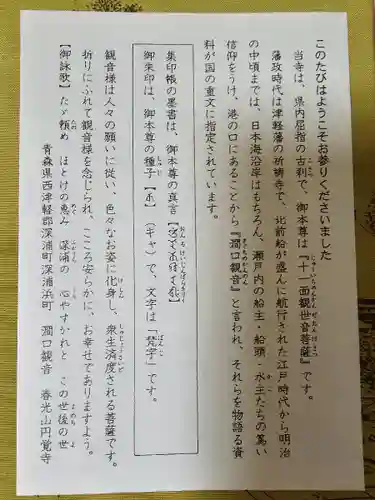 このたびはようこそお参りくださいました
当寺は、県内屈指の古刹で、御本尊は『十一面観世音菩薩』です。
藩政時代は津軽藩の祈祷寺で、北前船が盛んに航行された江戸時代から明治
の中頃までは、日本海沿岸はもちろん、瀬戸内の船主・船頭・水主たちの篤い
信仰をうけ、港の口にあることから『澗口観音』と言われ、それらを物語る資
料が国の重文に指定されています。
集印帳の墨書は、御本尊の真言【】
御朱印は、御本尊の種子【】(キャ)で、文字は「梵字」です。
観音様は人々の願いに従い、色々なお姿に化身し、衆生済度される菩薩です。
祈りにふれて観音様を念じられ、こころ安らかに、お幸せでありますよう。
【御詠歌】たゞ頼め ほとけの恵み 深浦の 心やすかれと この世後の世
青森県西津軽郡深浦町深浦浜町 澗口観音 春光山円覚寺